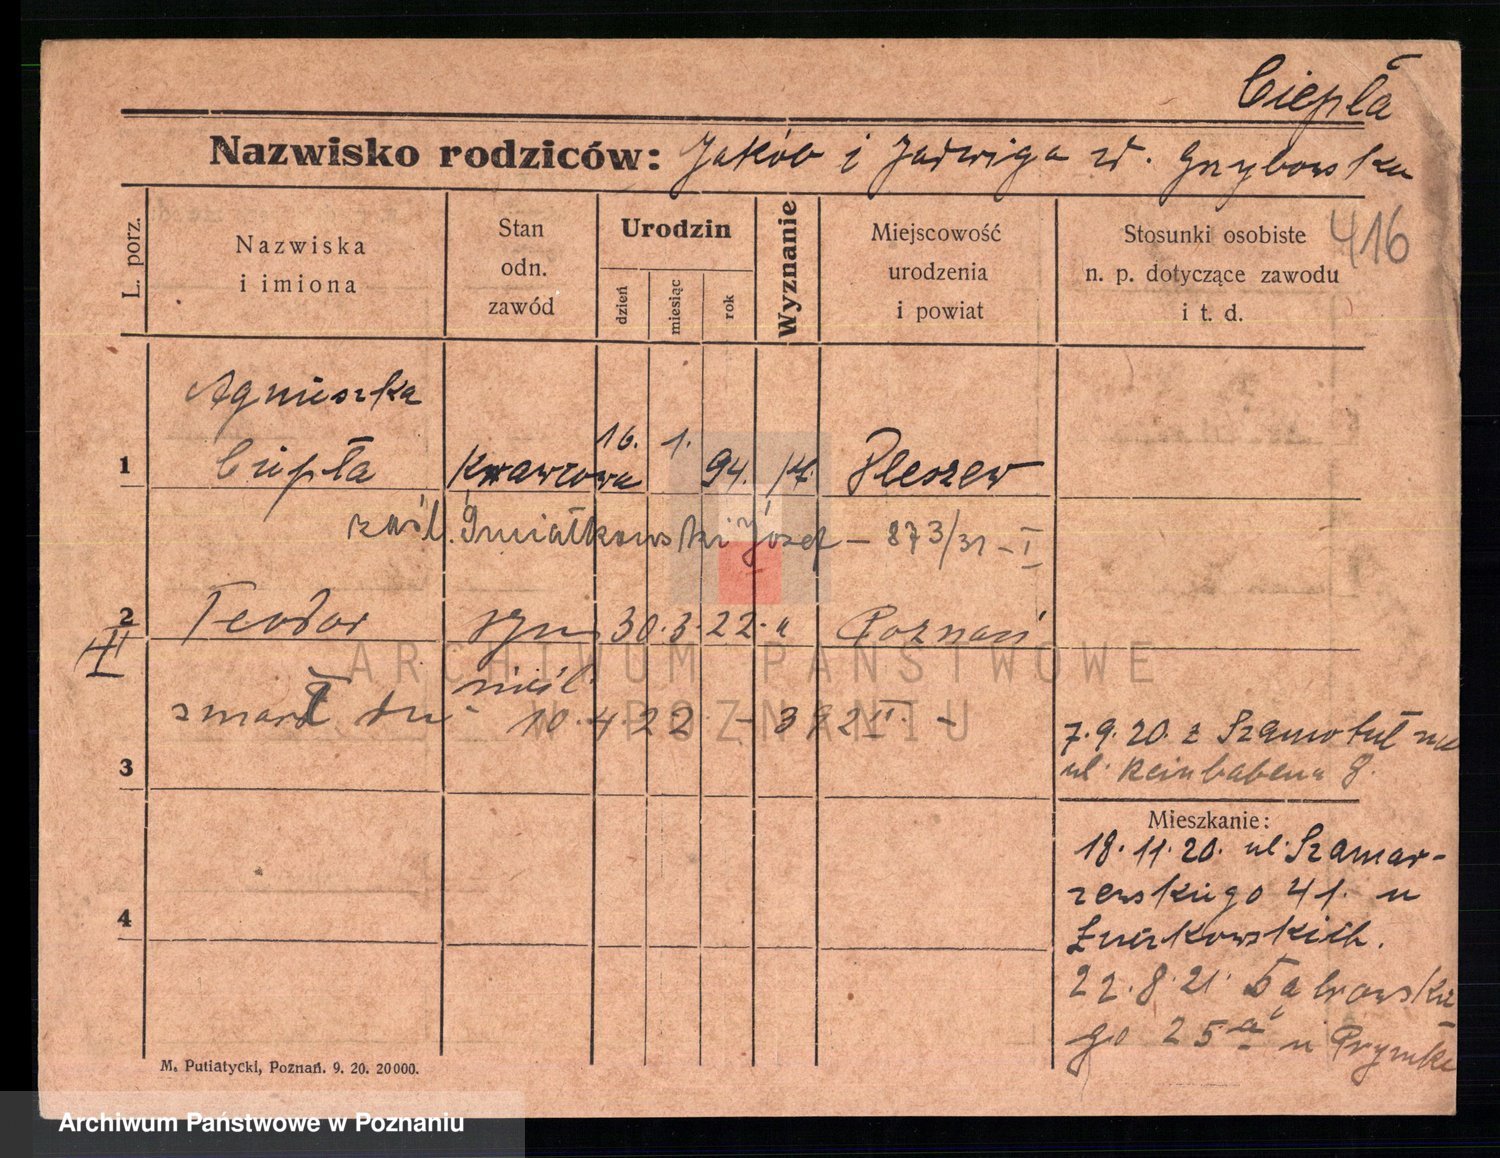 Ciepła
Nazwisko rodziców: Jakób i Jadwiga z d. Grzybowska
416
L. porz.
Nazwiska i imiona
Stan odn. zawód
Urodzin
dzień
miesiąc
rok
Wyznanie
Miejscowość urodzenia i powiat
Stosunki osobiste n. p. dotyczące zawodu i t. d.
Agnieszka
1 Ciepła Krawcowa 16. 1. 94. /k. Pleszew
zaśl. Józef – 873/31 – I
2 Teodor syn 30. 3. 22. " Poznań
II
nieśl.
zmarł dn. 10.4.22 – 392 II. –
3
7.9.20. z Szamotuł na
ul. Reinbabena 8.
Mieszkanie:
18.11.20. ul. Szamar-
zewskiego 41. u
22.8.21. Dąbrowskie
go 25a u
4
M. Putiatycki, Poznań. 9. 20. 20000.
ARCHIWUM PAŃSTWOWE
W POZNANIU
Archiwum Państwowe w Poznaniu